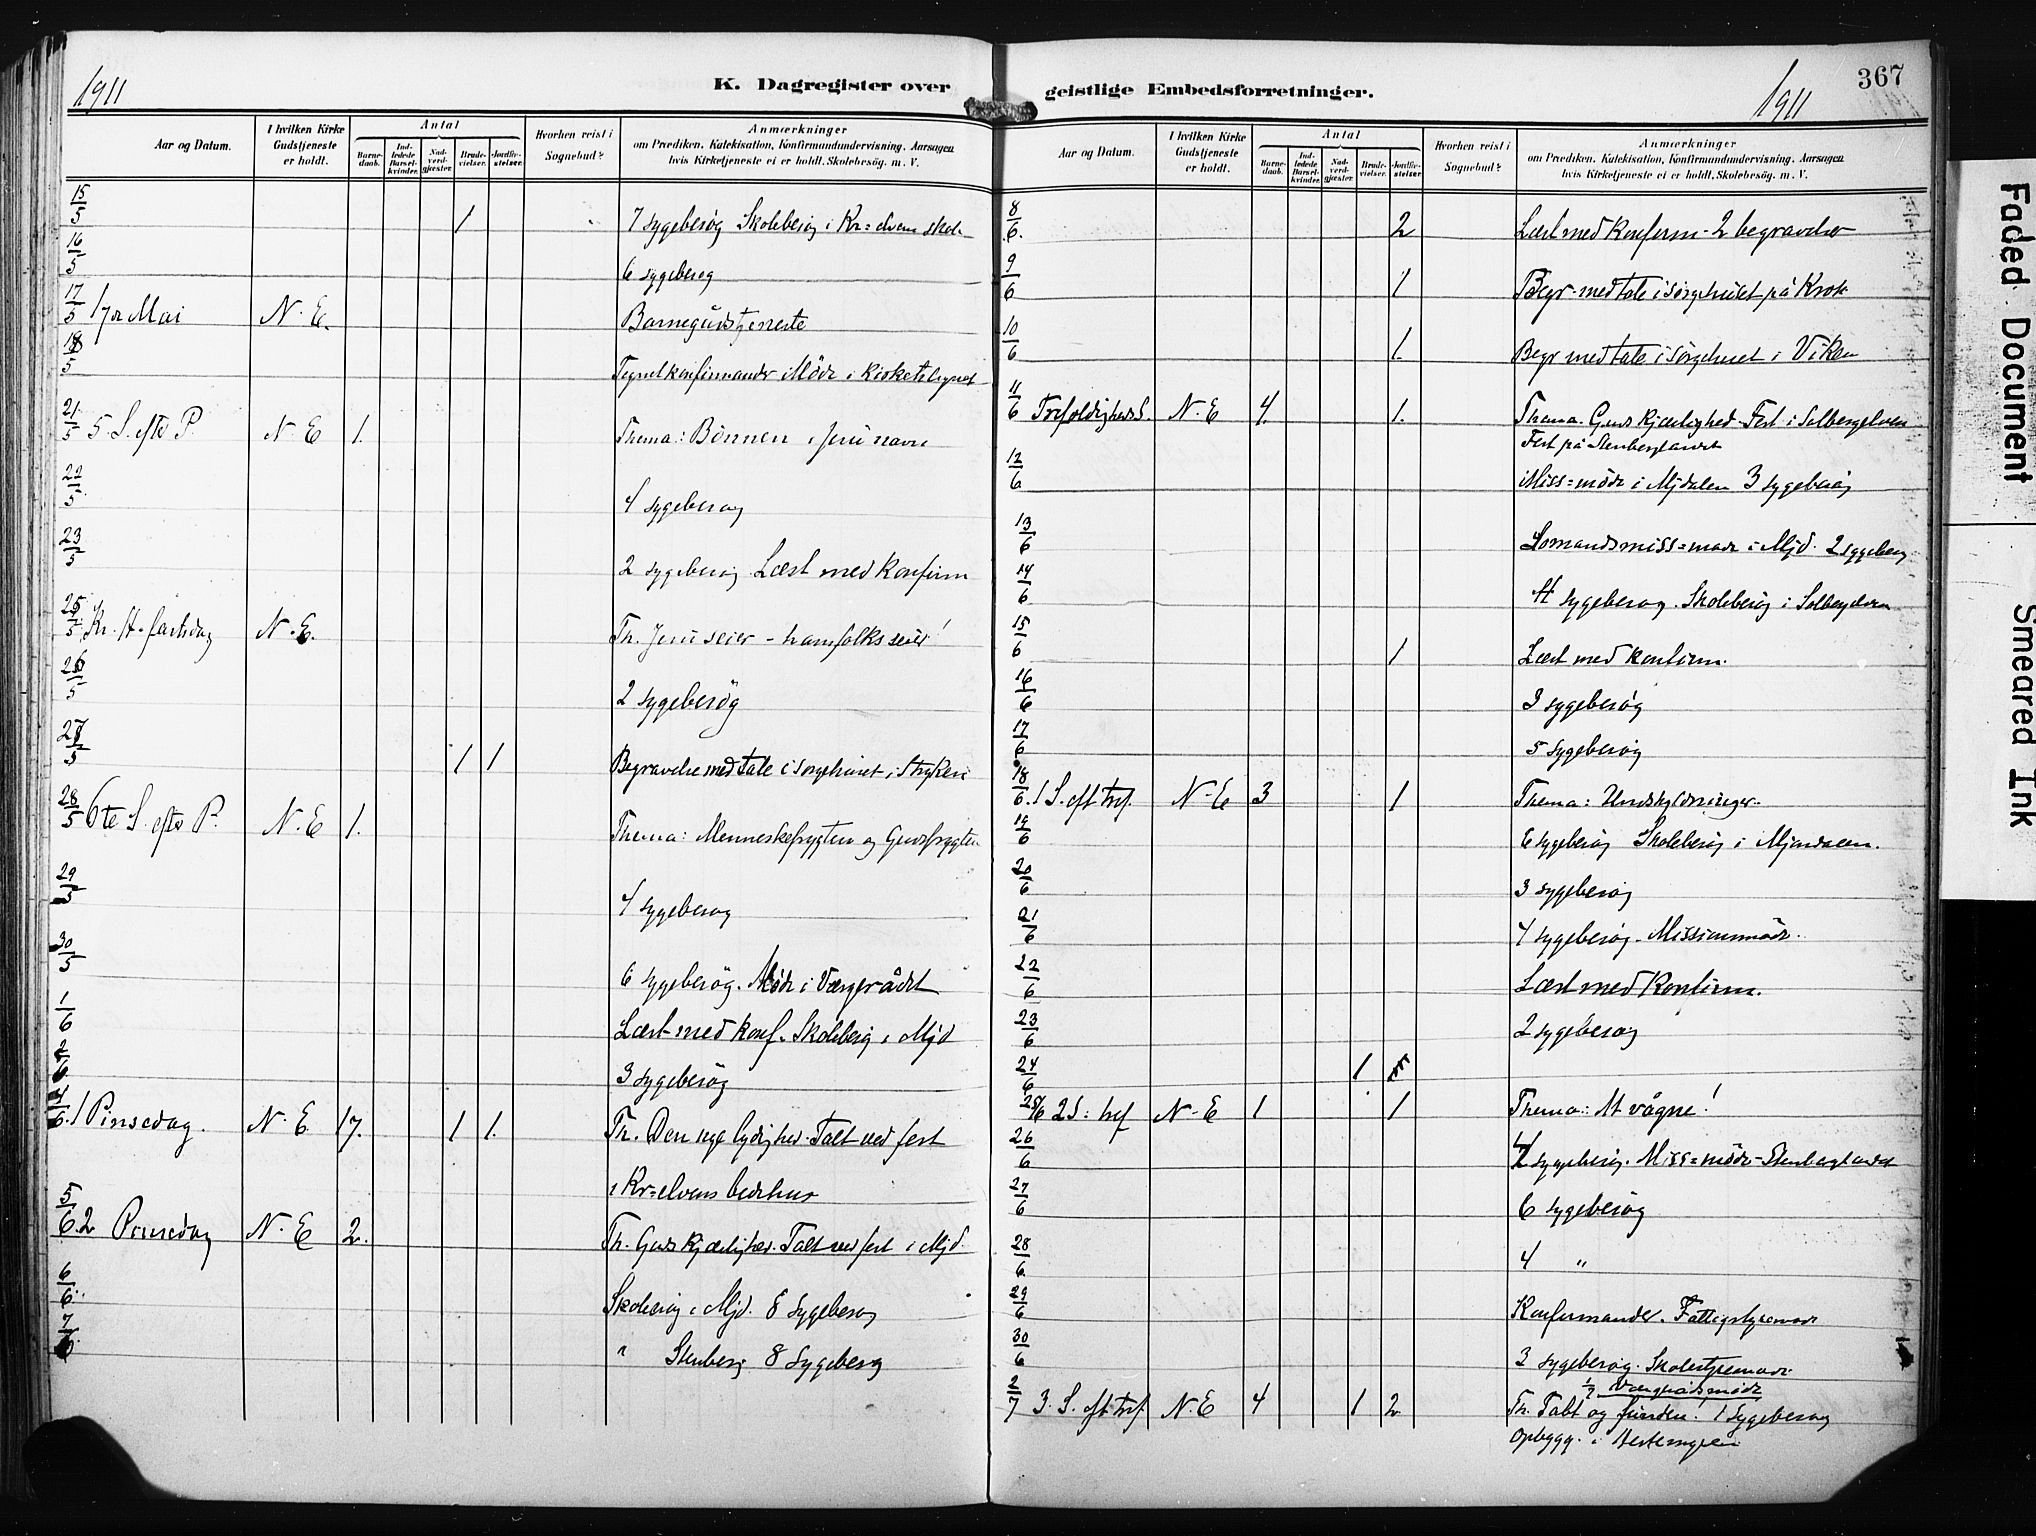 1911
K. Dagregister over
Aar og Datum.
I hvilken Kirke Gudstjeneste er holdt.
Antal
Barnedaab.
Indledede Barselkvinder.
Nadverdgjæster.
Brudevielser.
Jordfæstelser.
Hvorhen reist i Sognebud?
Anmærkninger
om Prædiken, Katekisation, Konfirmandundervisning. Aarsagen
hvis Kirketjeneste ei er holdt. Skolebesög. m. V.
15/5 1 7 sygebesøg Skolebesøg i Kr=elvens skole
16/5 6 sygebesøg
17/5 17de Mai N. E. Barnegudstjeneste
18/5 Tegnet konfirmander Møde i
21/5 5. S. efter P. N. E 1. Thema: Bønnen i Jesu navn
22/5 4 sygebesøg
23/5 2 sygebesøg Læst med konfirm
25/5 Kr. H. fartsdag N. E. Th. Jesu seier - hans folks seier!
26/5 2 sygebesøg
27/5 1 1 Begravelse med tale i sørgehuset i Stryken
28/5 6te S. efter P. N. E 1. Thema: Menneskefrygten og Gudsfrygten
29/5 4 sygebesøg
30/5 6 sygebesøg. Møde i Værgerådet
1/6 Læst med konf. Skolebesøg i Mjd
2/6 3 sygebesøg
4/6. 1 Pinsedag. N. E. 17. 1 1. Th. Den nye lydighed. Talt ved fest
i Kr=elvens bedehus
5/6. 2 Pinsedag N. E 2. Th. Guds kjærlighed. Talt ved fest i Mjd.
6/6. Skolebesøg i Mjd. 8 sygebesøg
7/6. " Stenberg 8 sygebesøg
geistlige Embedsforretninger.
1911
367
Aar og Datum.
I hvilken Kirke Gudstjeneste er holdt.
Antal
Barnedaab.
Indledede Barselkvinder.
Nadverdgjæster.
Brudevielser.
Jordfæstelser.
Hvorhen reist i Sognebud?
Anmærkninger
om Prædiken, Katekisation, Konfirmandundervisning. Aarsagen
hvis Kirketjeneste ei er holdt. Skolebesøg. m. V.
8/6. 2 Læst med konfirm - 2 begravelser
9/6 1 Begr. med tale i sørgehuset på Krok
10/6 1. Begr med tale i sørgehuset i Viken
11/6 Trefoldigheds S. N. E 4. 1. Thema. Guds kjærlighed. Fest i Solbergelven
Fest på Stenberglandet
12/6 Miss=møde i Mjdalen 3 sygebesøg
13/6 Sømandsmiss=møde i Mjd. 2 sygebesøg
14/6 4 sygebesøg. Skolebesøg i Solbergelven
15/6 1 Læst med konfirm.
16/6 3 sygebesøg
17/6 5 sygebesøg
18/6. 1 S. eft tref. N. E 3 1 Thema: Undskyldninger.
19/6 6 sygebesøg Skolebesøg i Mjøndalen.
20/6 3 sygebesøg
21/6 4 sygebesøg. Missionsmøde.
22/6 Læst med konfirm.
23/6 2 sygebesøg
24/6 1
25/6 2 S: tref N. E 1 1 Thema: At vågne!
26/6 sygebesøg. Miss=møde - Stenberglandet
27/6 6 sygebesøg
28/6. 4 "
29/6 Konfirmander. Fattigstyremøde
30/6 3 sygebesøg. Skolestyremøde
1/7 Værgerådsmøde
2/7 3. S. eft tref. N. E 4 1 2 Th. Tabt og funden! 1 sygebesøg
Opbygg. i
Faded Document
Smeared Ink